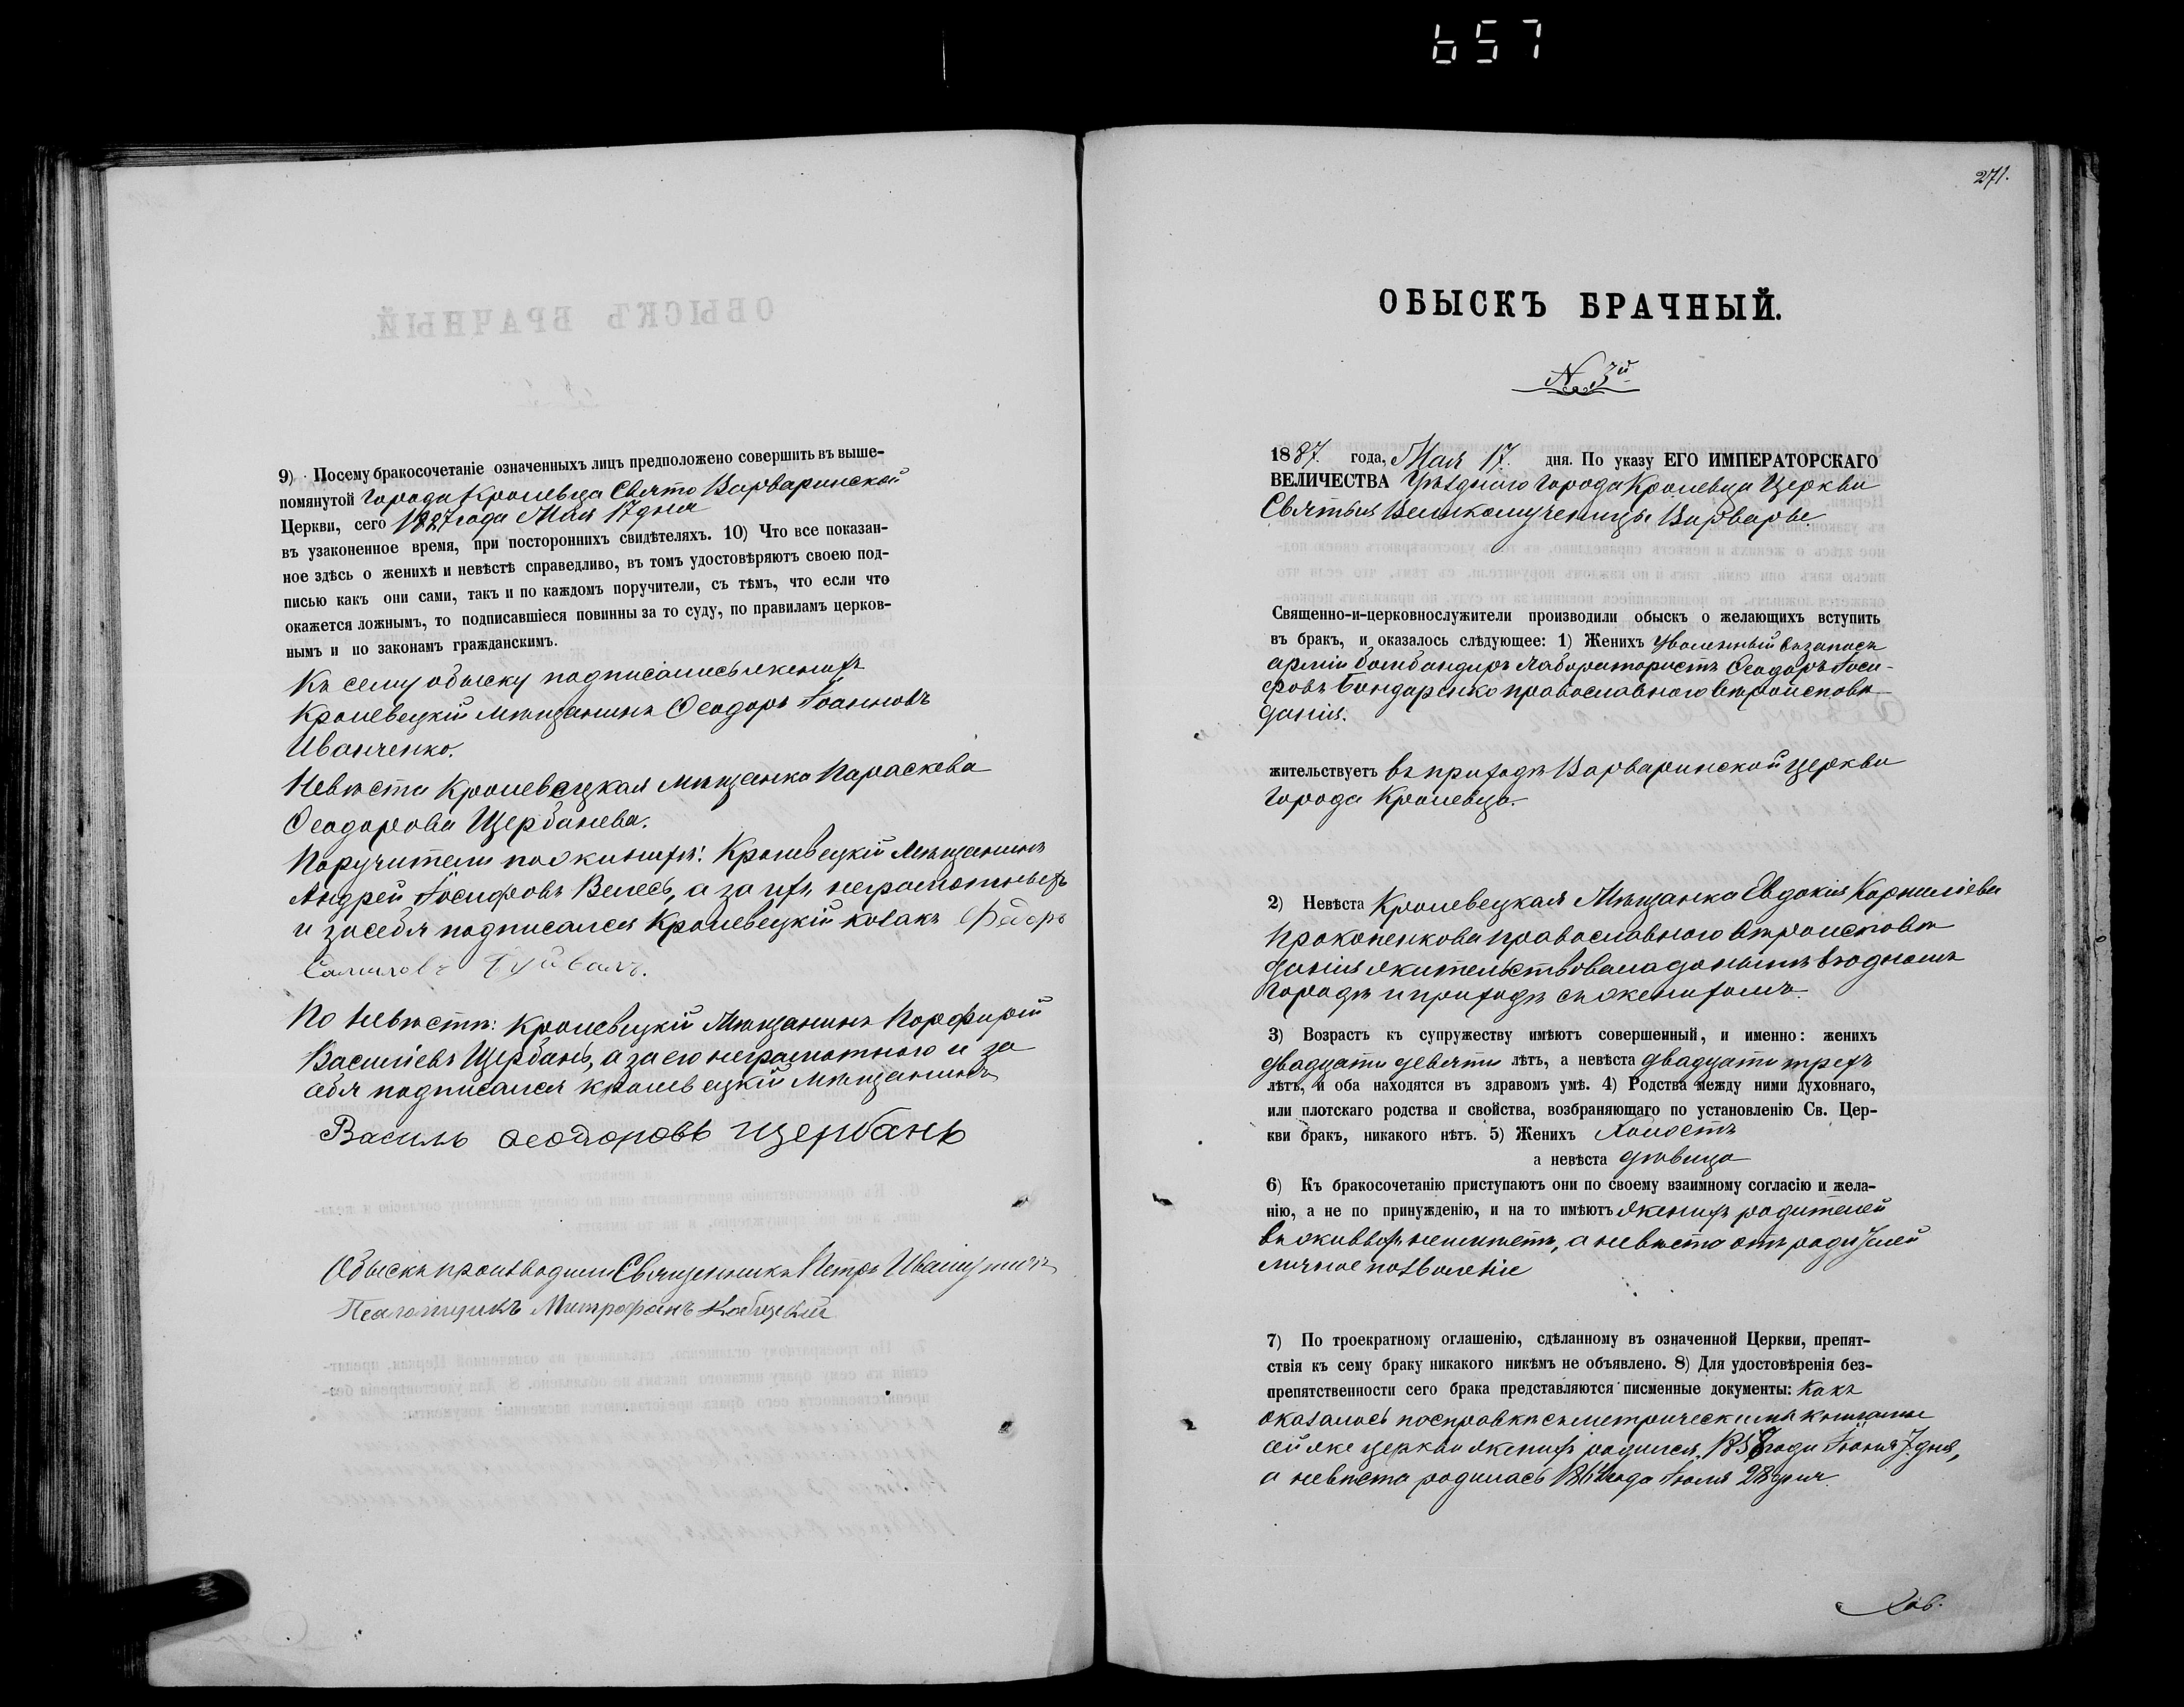 657
9) Посему бракосочетаніе означенныхъ лицъ предположено совершить въ выше-
помянутой города Кролевца Свято Варваринской
Церкви, сего 1887 года Мая 17 дня
въ узаконенное время, при постороннихъ свидѣтеляхъ. 10) Что все показан-
ное здѣсь о женихѣ и невѣстѣ справедливо, въ томъ удостовѣряютъ своею под-
писью какъ они сами, такъ и по каждомъ поручители, съ тѣмъ, что если что
окажется ложнымъ, то подписавшіеся повинны за то суду, по правиламъ церков-
нымъ и по законамъ гражданскимъ.
Къ сему обыску подписались женихъ
Кролевецкій мѣщанинъ Ѳеодоръ Іоанновъ
Иванченко.
Невѣста Кролевецкая мѣщанка Параскева
Ѳеодорова Щербанева.
Поручители по женихѣ: Кролевецкій мѣщанинъ
Андрей Іосифовъ Велесь, а за ихъ неграмотныхъ
и за себя подписался Кролевецкій козакъ Федоръ
По невѣстѣ: Кролевецкій мѣщанинъ Порфирій
Василіевъ Щербань, а за его неграмотного и за
себя подписался кролевецкій мѣщанинъ
Василь Ѳеодоровъ Щербань
Обыскъ производили Священникъ Петръ
Псаломщикъ Митрофанъ
271.
ОБЫСКЪ БРАЧНЫЙ.
№ 3й
1887. года, Мая 17. дня. По указу ЕГО ИМПЕРАТОРСКАГО
ВЕЛИЧЕСТВА Уѣздного города Кролевца Церкви
Святыя Великомученицы Варвары
Священно-и-церковнослужители производили обыскъ о желающихъ вступить
въ бракъ, и оказалось слѣдующее: 1) Женихъ уволенный въ запасъ
арміи бомбандиръ лаборатористъ Ѳеодоръ Іоси-
фовъ Бондаренко православного вѣроисповѣ-
данія.
жительствуетъ въ приходѣ Варваринской церкви
города Кролевца.
2) Невѣста Кролевецкая Мѣщанка Евдокія Корниліева
Прокопенкова православного вѣроисповѣ
данія жительствовала до нынѣ въ одномъ
городѣ и приходѣ съ женихомъ.
3) Возрастъ къ супружеству имѣютъ совершенный, и именно: женихъ
двадцати девяти лѣтъ, а невѣста двадцати трехъ
лѣтъ, и оба находятся въ здравомъ умѣ. 4) Родства между ними духовнаго,
или плотскаго родства и свойства, возбраняющаго по установленію Св. Цер-
кви бракъ, никакого нѣтъ. 5) Женихъ Холостъ
а невѣста дѣвица
6) Къ бракосочетанію приступаютъ они по своему взаимному согласію и жела-
нію, а не по принужденію, и на то имѣютъ женихъ родителей
въ живыхъ неимѣетъ, а невѣста отъ родителей
личное позволеніе
7) По троекратному оглашенію, сдѣланному въ означенной Церкви, препят-
ствія къ сему браку никакого никѣмъ не объявлено. 8) Для удостовѣренія без-
препятственности сего брака представляются писменные документы: Какъ
оказалось по справкѣ съ метрическими книгами
сей же церкви женихъ родился 1858 года Іюня 7. дня,
а невѣста родилась 1864 года Іюля 28 дня.